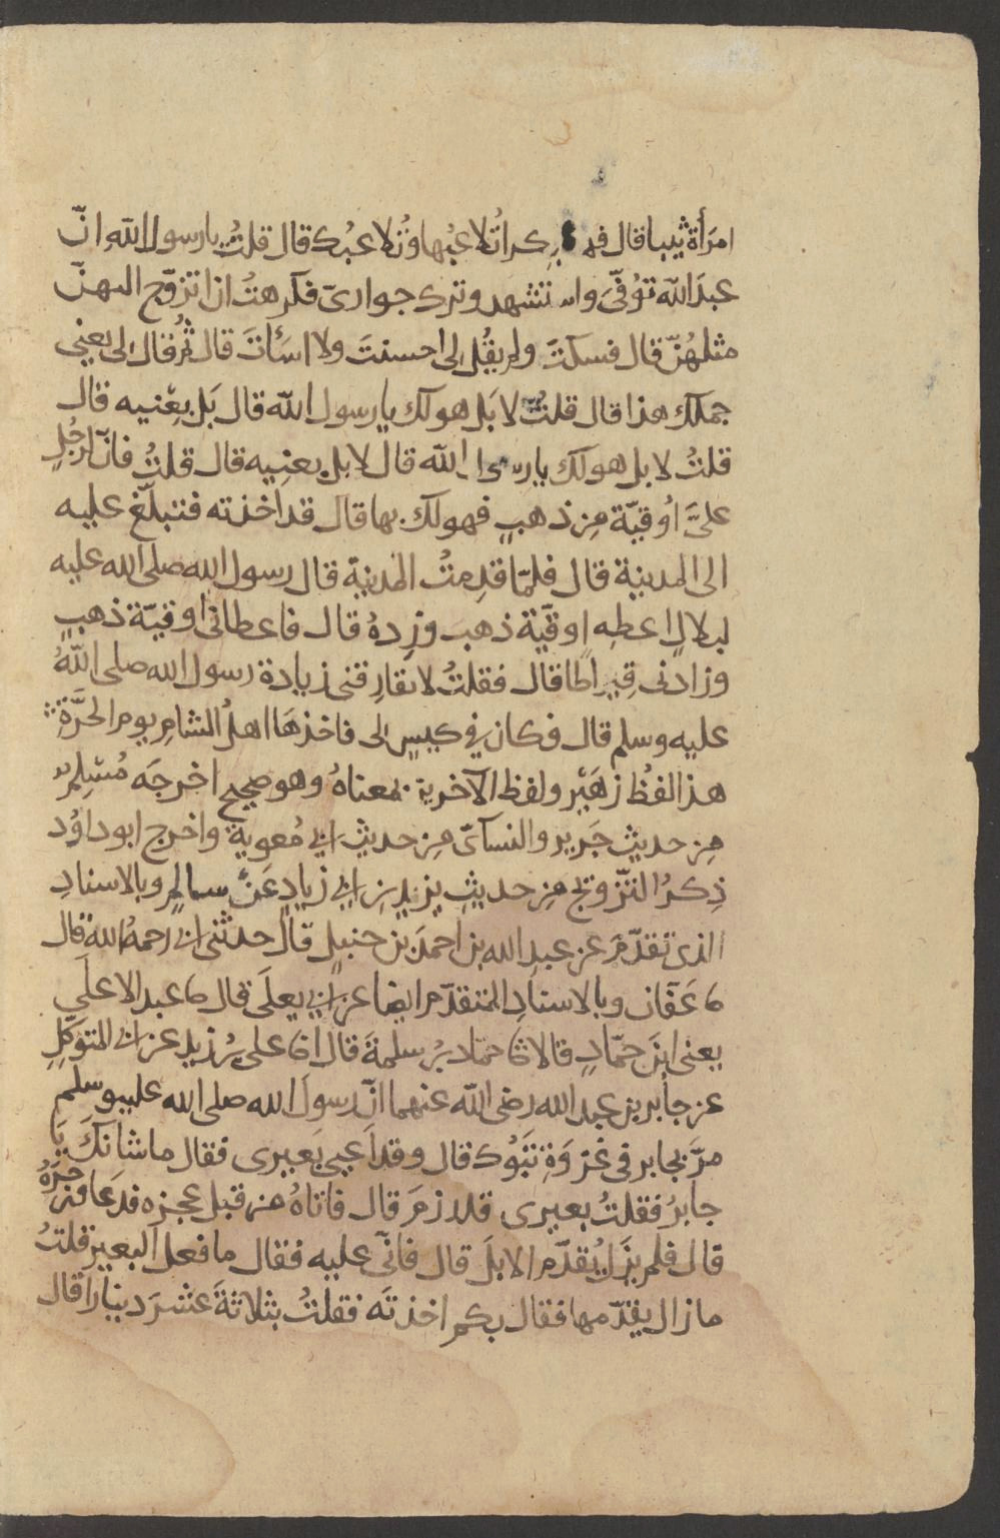 امرَأة ثيبا قال فه بِكراتُلاعبُها وتُلاعبُك قال قلتُ يا رسول الله انّ
عبدَ الله توُفّى واستشهد وترك جوارىَ فكرهتُ ان اتزوّج اليهنّ
مثلهُنّ قال فسكتَ ولم يقُل لى احسنتَ ولا اسَأتَ قال ثُم قال لى بعنى
جملك هذا قال قلتُ لا بَل هو لك يا رسول الله قال بَل بِعْنيه قال
قلتُ لا بل هو لك يا رسول الله قال لا بل بعنِيه قال قلتُ فانّ لرجُلٍ
علىَّ اوُقيّة مِن ذهبٍ فهو لك بها قال قد اخذته فتبلّغ عليه
الى المدينة قال فلمّا قدِمتُ المدينة قال رسول الله صلى الله عليه
لبلالٍ اعطِه اوقيّة ذهب وزِدهُ قال فاعطانى اوقيّة ذهبٍ
وزادنى قِيراطا قال فقلتُ لا تفارِقنى زيادة رسول الله صلى اللهُ
عليه وسلم قال فكان في كيسٍ لى فاخذهَا اهلُ الشامِ يوم الحَرَّةِ
هذا لفظُ زهَيْر ولفظ الآخرين بمعناهُ وهو صحيح اخرجَه مُسْلِم
مِن حديثِ جَرير والنسآئى مِن حديثِ ابي مُعوية واخرج ابو داوُد
ذِكرُ التّزويج مِن حديثِ يزيد بن ابي زيادٍ عَنْ سالمٍ وبالاسنادِ
الذى تقدّمَ عن عبدِ الله بن احمدَ بن حنبلٍ قال حدثنى ابى رحمهُ اللهُ قال
ثا عَفّان وبالاسنادِ المتقدّم ايضا عن ابي يعلَى قال ثا عبد الاعلَى
يعنى ابنَ حمّادٍ قالا ثا حمّاد بنُ سلمةَ قال انا على بنُ زيد عن ابى المتوكّلِ
عن جابر بن عبد الله رضى الله عنهما انّ رسولَ الله صلى الله عليه وسلم
مرَّ بجابر فى غزوَةِ تَبَوُك قال وقد اَعيى بَعيرى فقال ما شانكَ يَا
جابرُ فقلتُ بعيرى قد رزمَ قال فاتاهُ من قبل عجزه فدعا وزجَرَهُ
قال فلم يزَل يُقدّم الابلَ قال فاتى عليه فقال ما فعل البعير قلتُ
ما زال يقدّمها فقال بكم اخذتَه فقلتُ بثلاثةَ عشرَ دينارا قال